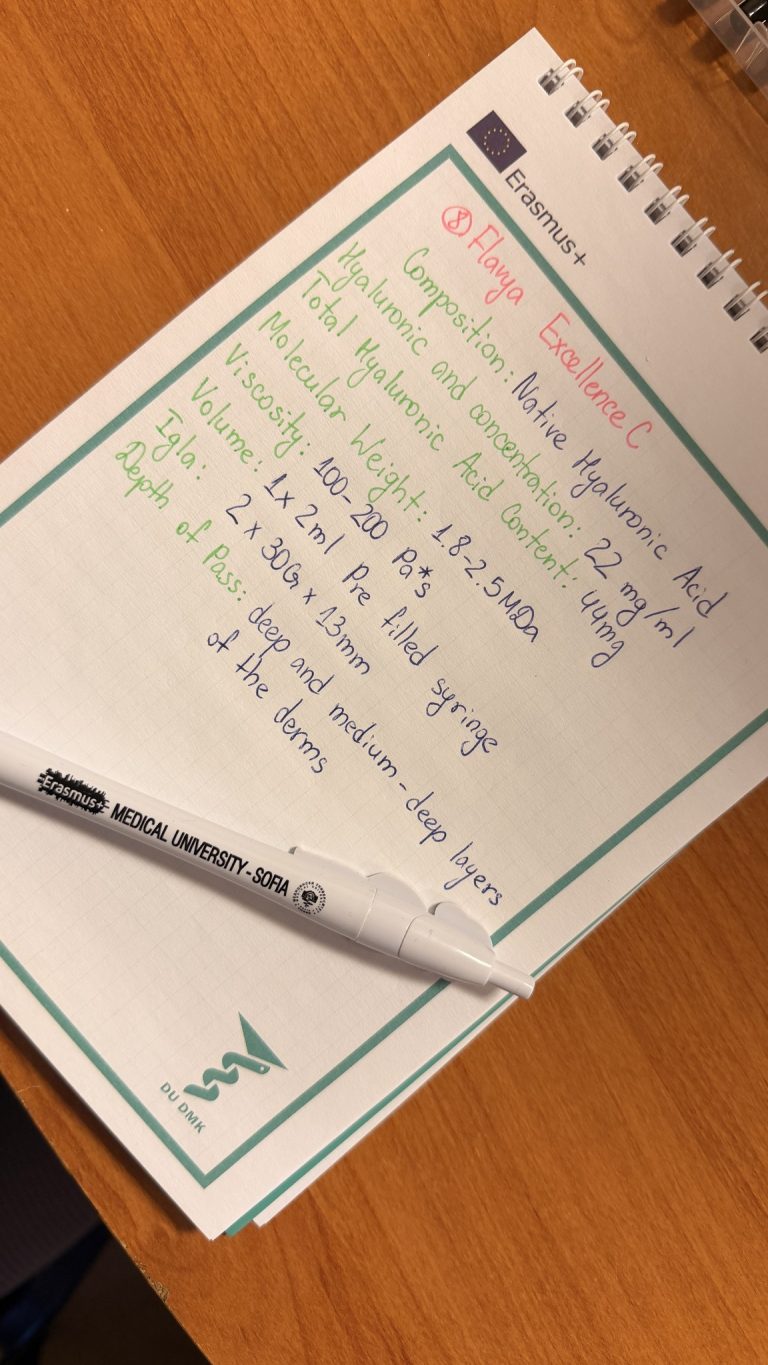 Erasmus+
⑧ Flarya Excellence C
Composition: Native Hyaluronic Acid
Hyaluronic and concentration: 22 mg/ml
Total Hyaluronic Acid Content: 44mg
Molecular Weight: 1.8-2.5MDa
Viscosity: 100-200 Pa*s
Volume: 1x 2ml Pre filled syringe
Igla: 2 x 30G x 13mm
Depth of Pass: deep and medium-deep layers
of the derms
Erasmus+ MEDICAL UNIVERSITY-SOFIA
DU DMK